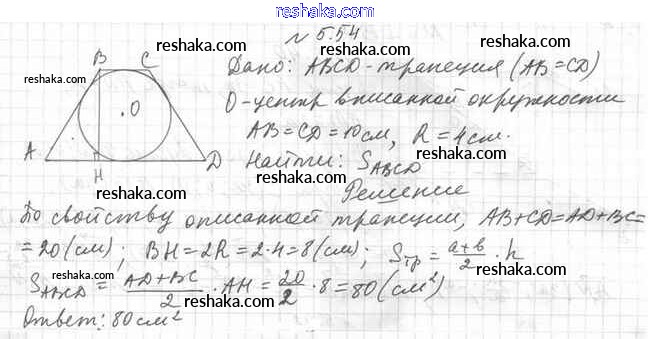 www.reshak.ru
№ 5.54
reshaka.com reshaka.com
B C Дано: ABCD-трапеция (AB=CD)
reshaka.com
O-центр вписанной окружности
.O
AB=CD=10см, R=4см.
A H D Найти: S_ABCD
reshaka.com reshaka.com
Решение
По свойству описанной трапеции, AB+CD=AD+BC=
reshaka.com reshaka.com
=20(см); BH=2R=2·4=8(см); S_тр=\frac{a+b}{2}·h
reshaka.com
S_ABCD=\frac{AD+BC}{2}·AH=\frac{20}{2}·8=80(см²)
reshaka.com reshaka.com
Ответ: 80см²